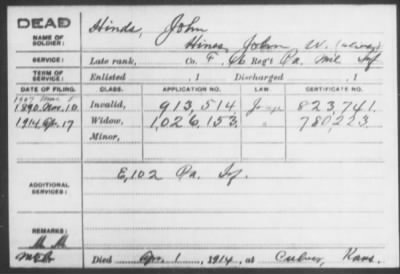 DEAD
NAME OF SOLDIER:
Hinds, John
Hines, John W. (alias)
SERVICE:
Late rank, Co. F, 46 Reg't Pa. Mil Inf
TERM OF SERVICE:
Enlisted , 1 Discharged , 1
DATE OF FILING. CLASS. APPLICATION NO. LAW CERTIFICATE NO.
1890 Nov. 10 Invalid, 913,514 823,741.
1914 Apr. 17 Widow, 1,026,153 780,223
Minor,
ADDITIONAL SERVICES:
E, 102 Pa. Inf.
REMARKS:
Died Apr. 1, 1914, at Culver, Kans.